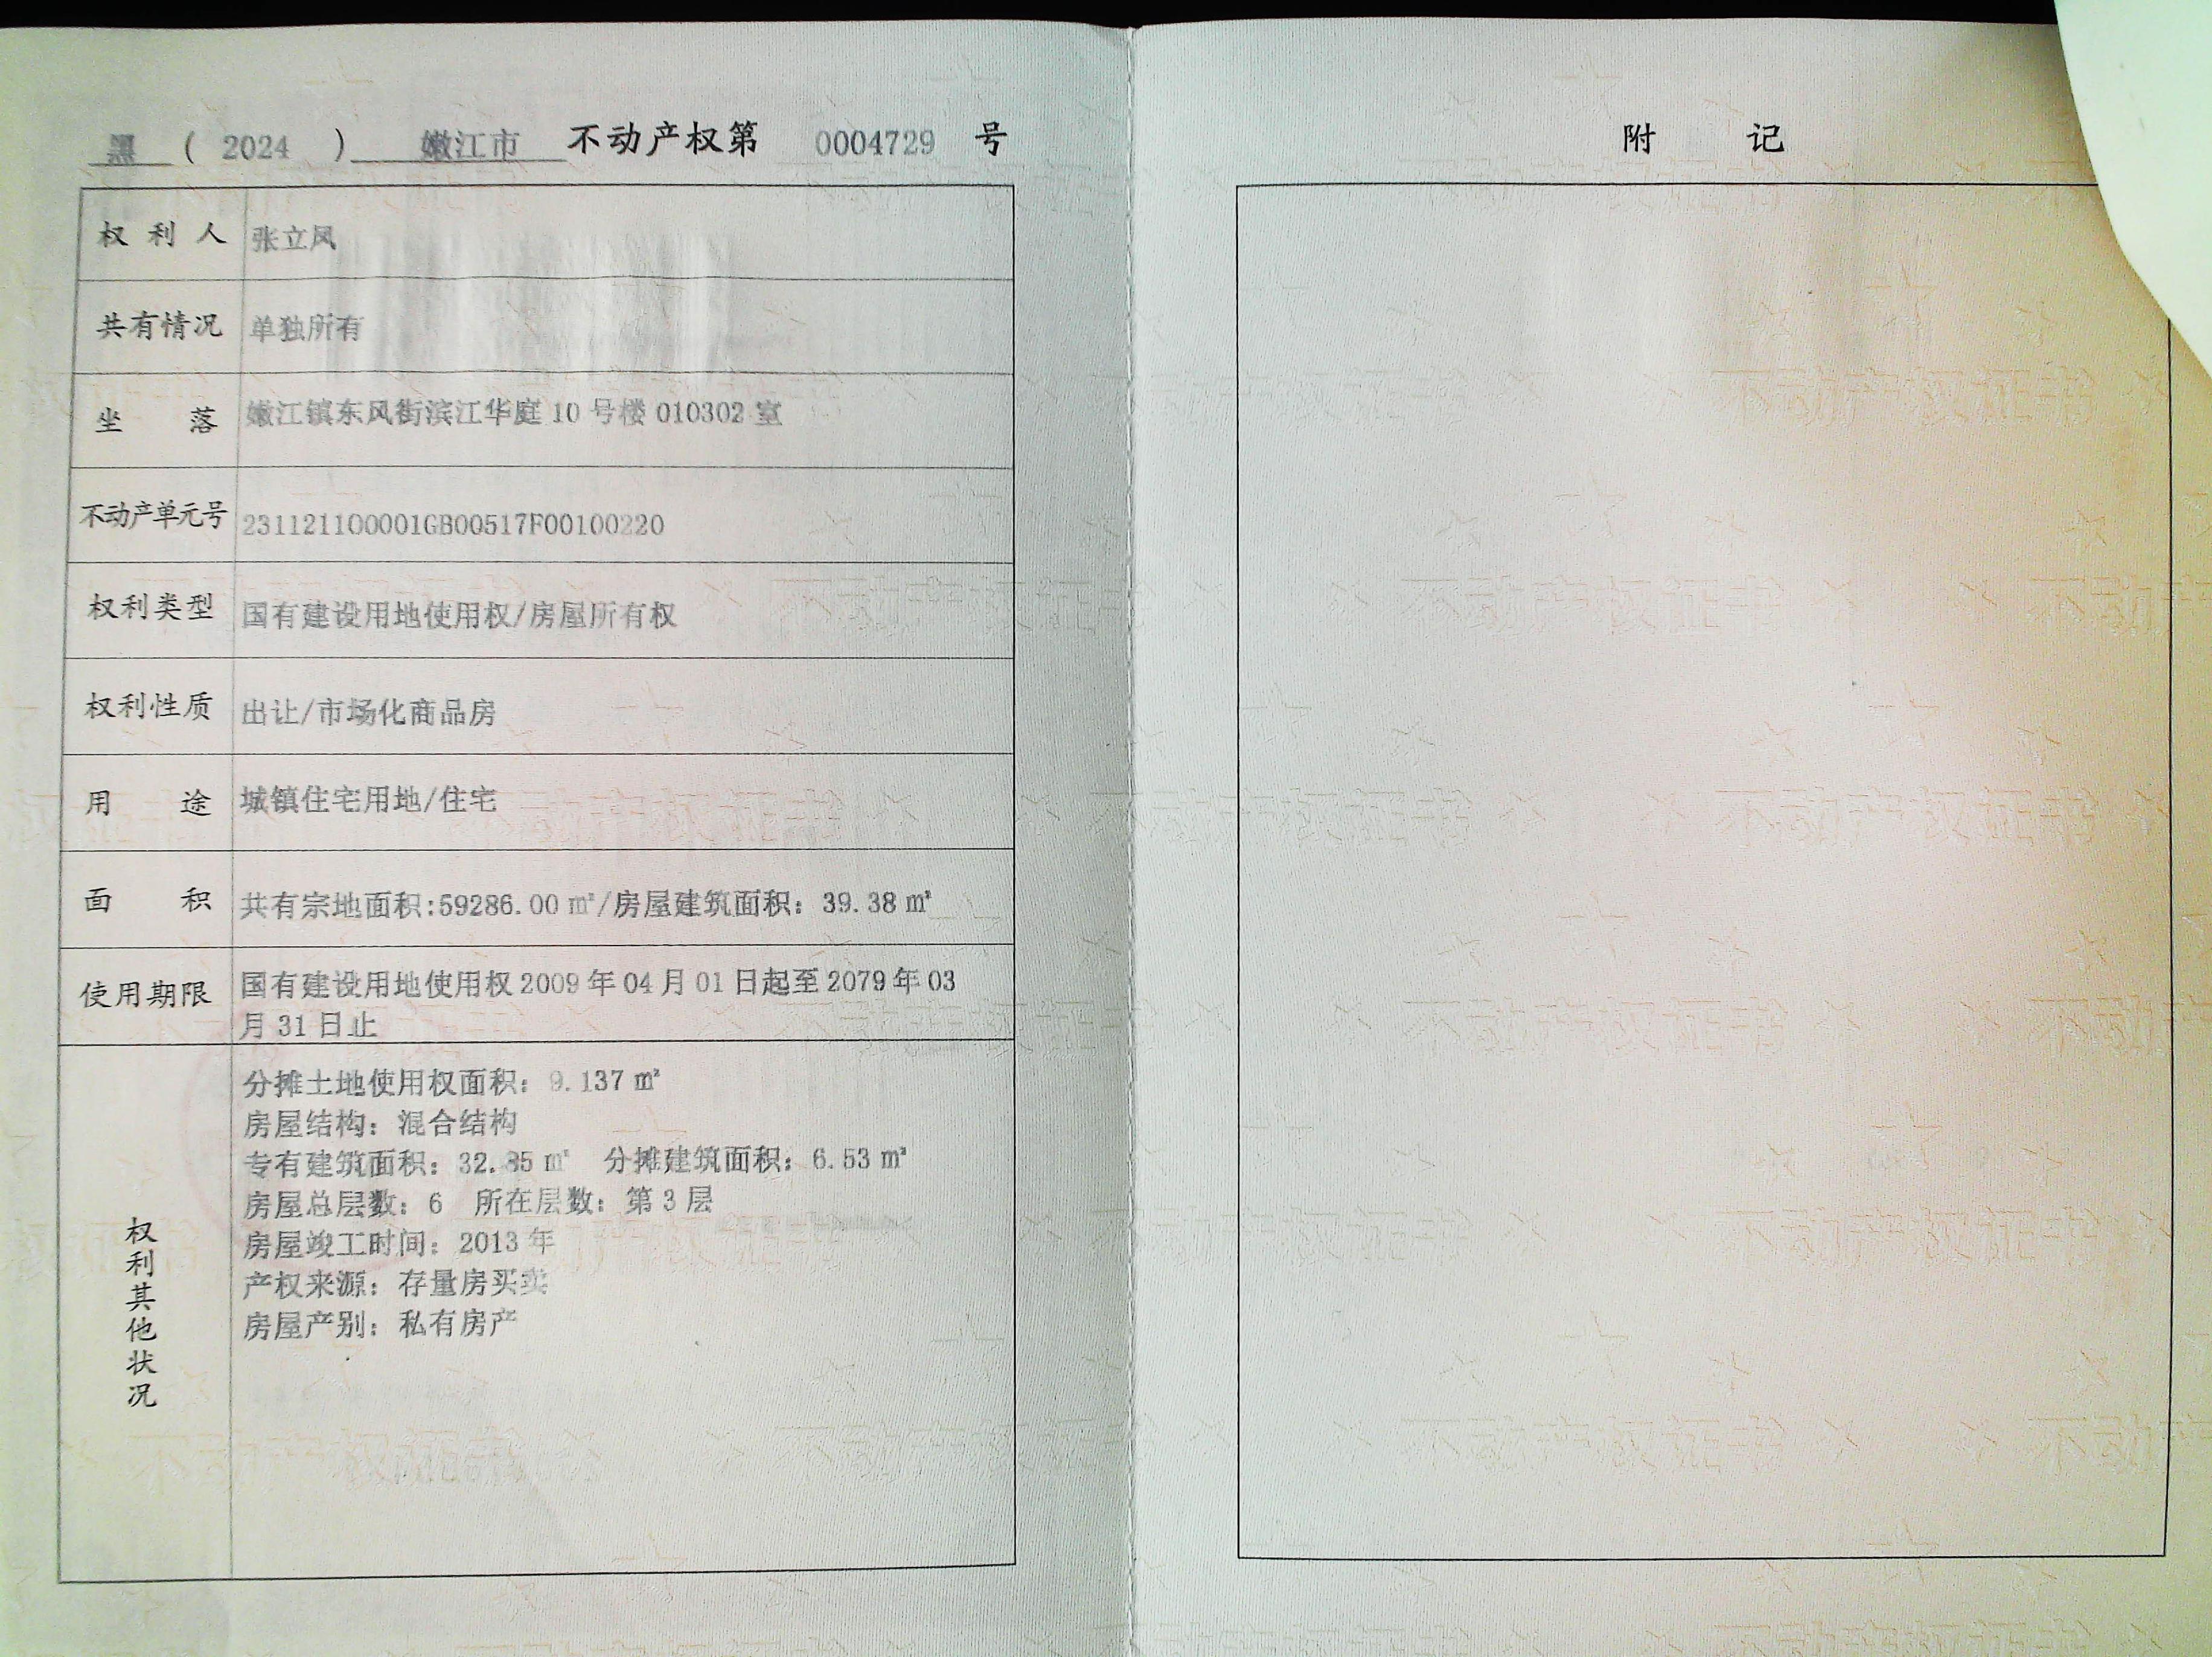 黑 ( 2024 ) 嫩江市 不动产权第 0004729 号
权利人 张立凤
共有情况 单独所有
坐落 嫩江镇东风街滨江华庭 10 号楼 010302 室
不动产单元号 231121100001GB00517F00100220
权利类型 国有建设用地使用权/房屋所有权
权利性质 出让/市场化商品房
用途 城镇住宅用地/住宅
面积 共有宗地面积:59286.00 ㎡/房屋建筑面积：39.38 ㎡
使用期限 国有建设用地使用权 2009 年 04 月 01 日起至 2079 年 03
月 31 日止
权利其他状况
分摊土地使用权面积：9.137 ㎡
房屋结构：混合结构
专有建筑面积：32.85 ㎡ 分摊建筑面积：6.53 ㎡
房屋总层数：6 所在层数：第 3 层
房屋竣工时间：2013 年
产权来源：存量房买卖
房屋产别：私有房产
附记
不动产权证书